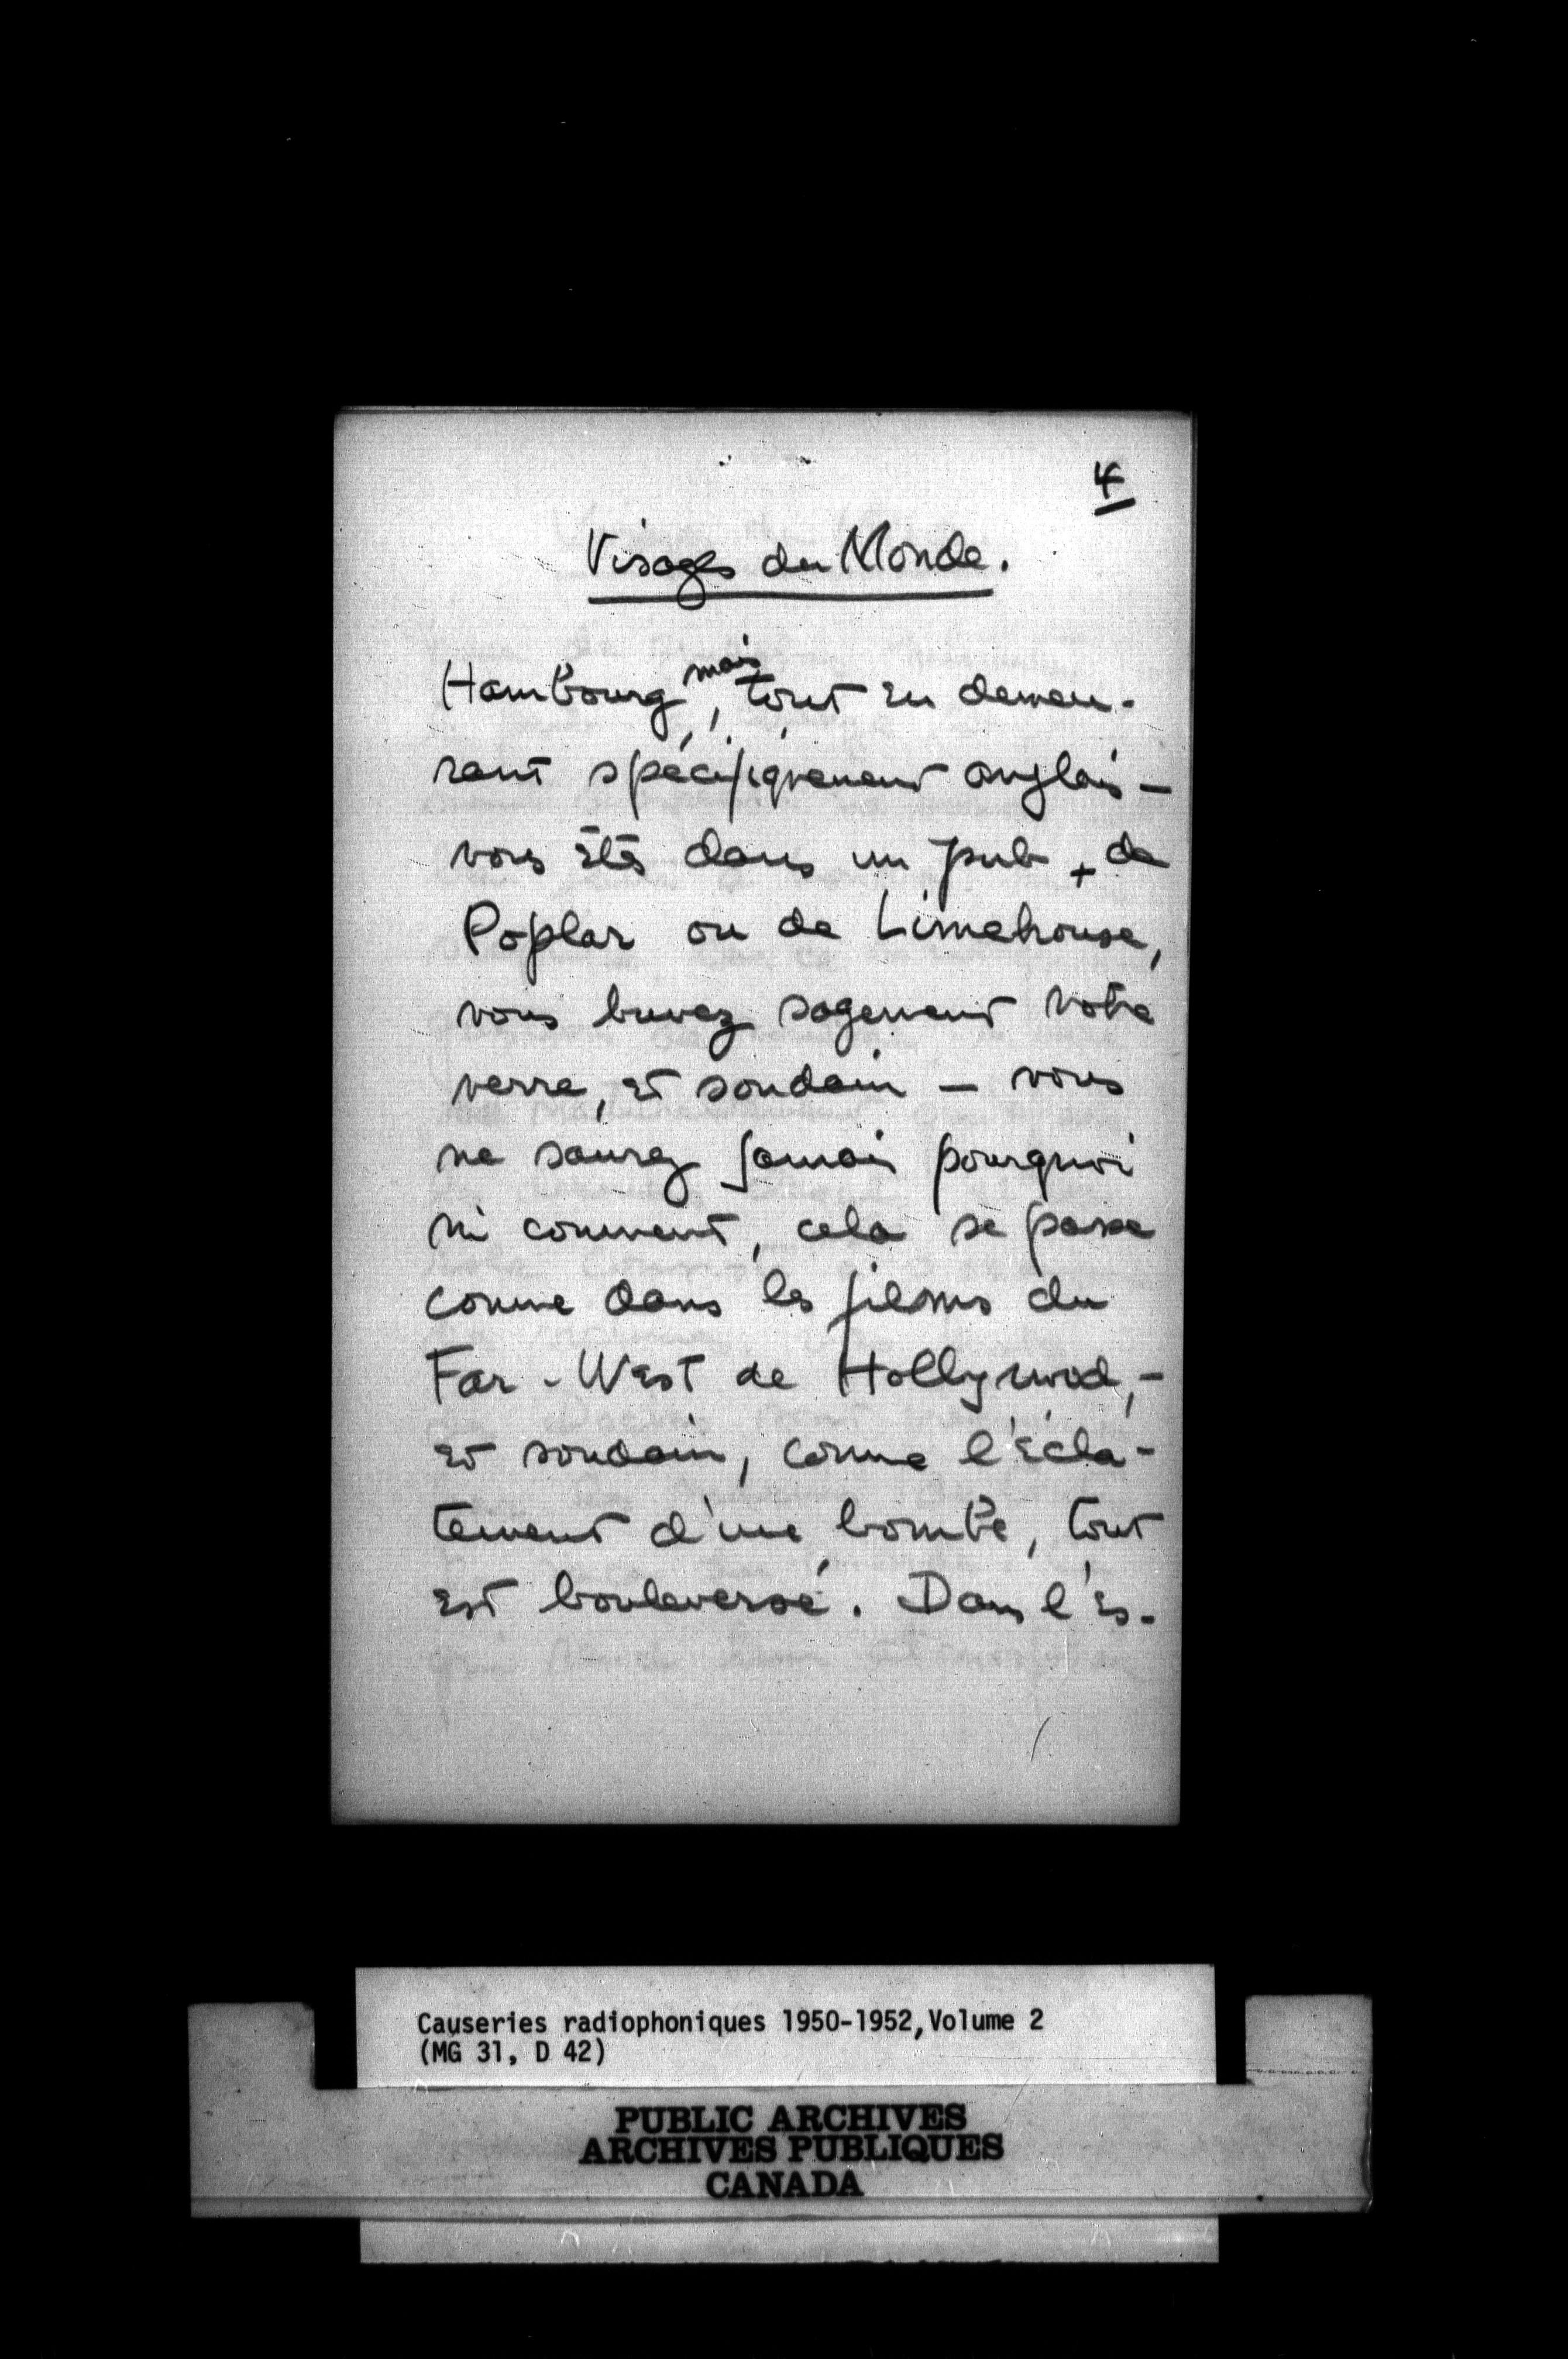 4
Visages du Monde.
mais
Hambourg, tout en demeu-
rant spécifiquement anglais —
vous êtes dans un pub + de
Poplar ou de Limehouse,
vous buvez sagement votre
verre, et soudain — vous
ne saurez jamais pourquoi
ni comment, cela se passe
comme dans les films du
Far-West de Hollywood, —
et soudain, comme l'écla-
tement d'une bombe, tout
est bouleversé. Dans l'es-
Causeries radiophoniques 1950-1952, Volume 2
(MG 31, D 42)
PUBLIC ARCHIVES
ARCHIVES PUBLIQUES
CANADA